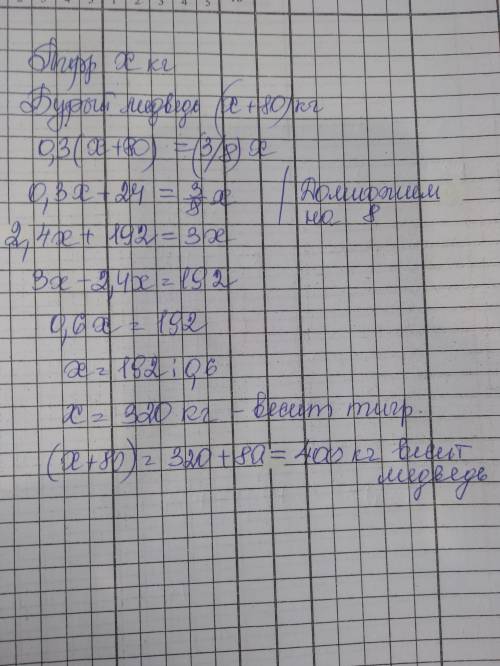 Тигр x кг
Бурый медведь (x+80) кг
0,3(x+80) = (3/8)x
0,3x+24 = 3/8 x | Домножим
на 8
2,4x + 192 = 3x
3x - 2,4x = 192
0,6x = 192
x = 192 : 0,6
x = 320 кг - весит тигр.
(x+80) = 320 + 80 = 400 кг весит
медведь